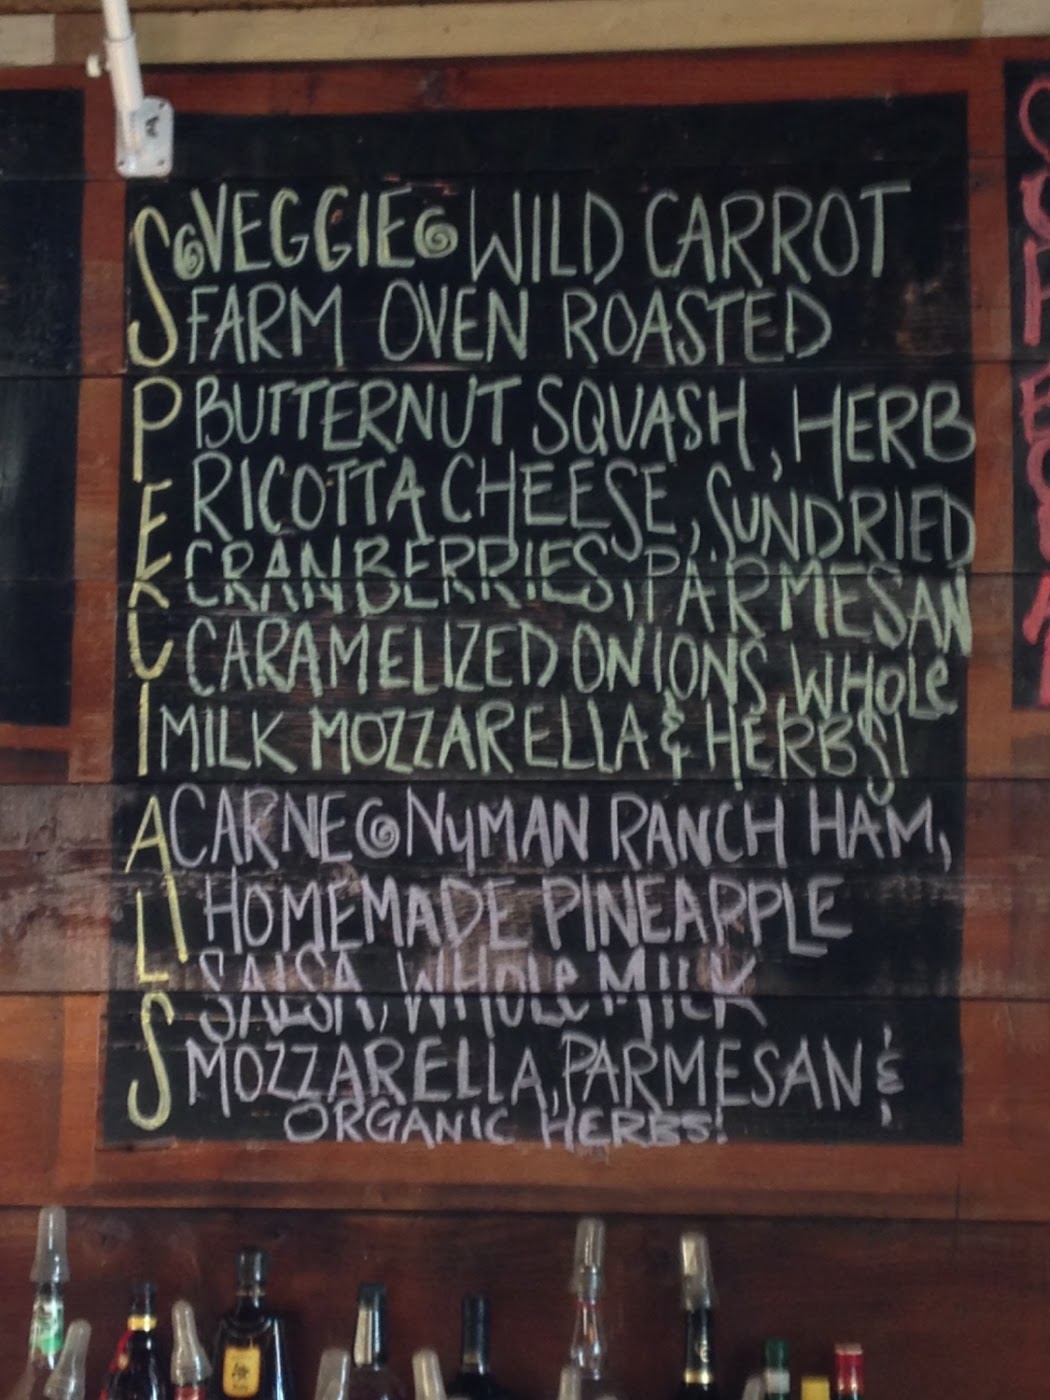 SPECIALS
VEGGIE WILD CARROT
FARM OVEN ROASTED
BUTTERNUT SQUASH, HERB
RICOTTA CHEESE, SUNDRIED
CRANBERRIES, PARMESAN
CARAMELIZED ONIONS, WHOLE
MILK MOZZARELLA & HERBS!
CARNE NYMAN RANCH HAM,
HOMEMADE PINEAPPLE
SALSA, WHOLE MILK
MOZZARELLA, PARMESAN &
ORGANIC HERBS!